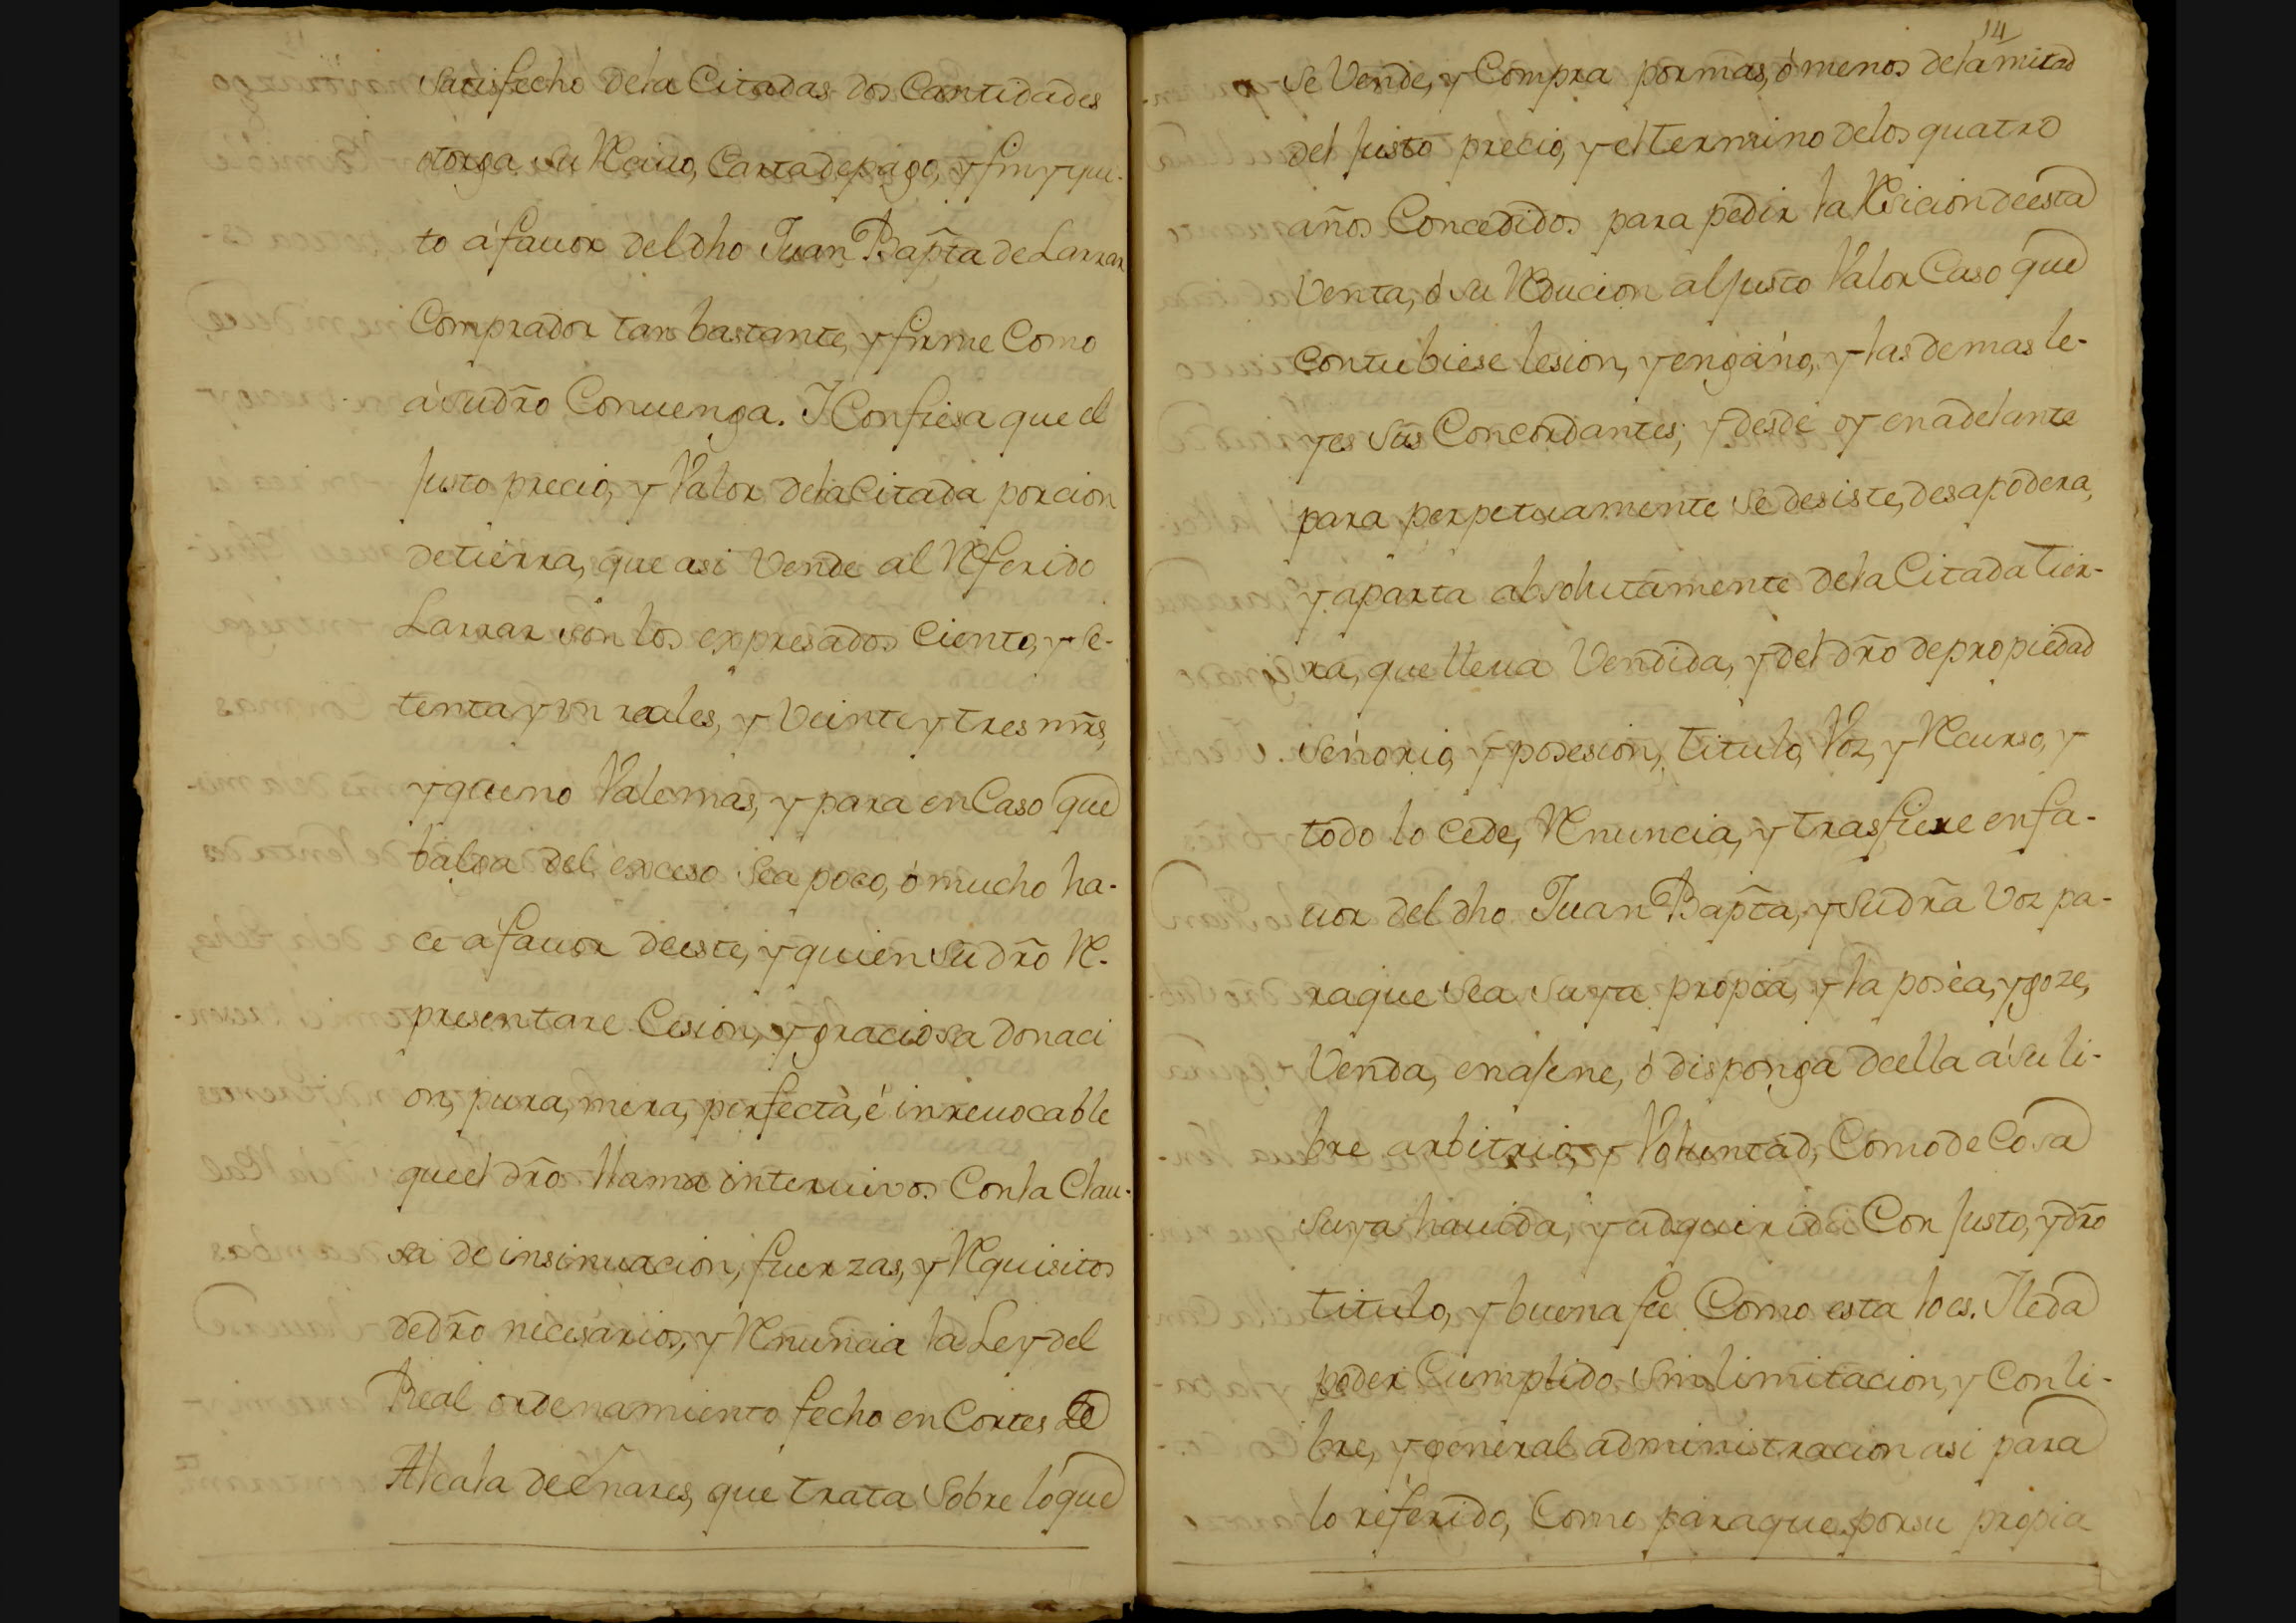 Satisfecho dela Citadas dos Cantidades
otorga su Reciuo, Carta depago, y fin y qui-
to á fauor del dho Juan Bapt̃a de Larrar
Comprador tan bastante, y firme Como
á su dr̃o Conuenga. I Confiesa que el
Justo precio, y Valor dela Citada porcion
de tierra, que asi Vende al Referido
Larrar son los expresados Ciento, y se-
tenta y un reales, y Veinte y tres mrs̃,
y que no Vale mas, y para en Caso que
balga del exceso sea poco, ó mucho ha-
ce á fauor de este, y quien su dr̃o Re-
presentare Cesion, y graciosa donaci
on, pura, mera, perfecta, é inreuocable
que el dr̃o llama interuivos Con la Clau-
sa de insinuacion, fuerzas, y Requisitos
de dr̃o necesarios, y Renuncia la Ley del
Real ordenamiento fecho en Cortes de
Alcala de Enares, que trata Sobre lo que
14
se Vende, y Compra por mas, ó menos dela mitad
del Justo precio, y el termino delos quatro
años Concedidos para pedir la Resicion de esta
Venta, ó su Reducion al Justo Valor Caso que
contubiese lesion, y engaño, y las demas le-
yes sus Concordantes; y desde oy en adelante
para perpetuamente se desiste, desapodera,
y aparta absolutamente dela Citada tier-
ra, que lleua Vendida, y del dr̃o de propiedad
Señorio, y posesion, titulo, Voz, y Recurso, y
todo lo cede, Renuncia, y trasfiere en fa-
uor del dho Juan Bapt̃a, y su dr̃a Voz pa-
raque sea suya propia, y la poséa, y goze,
Venda, enajene, ó disponga de ella á su li-
bre arbitrio, y Voluntad, Como de Cosa
suya hauida, y adquirida Con Justo, y dr̃o
titulo, y buena fee Como esta lo es. I le da
poder Cumplido sin limitacion, y Con li-
bre, y general administracion asi para
lo referido, Como paraque por su propia